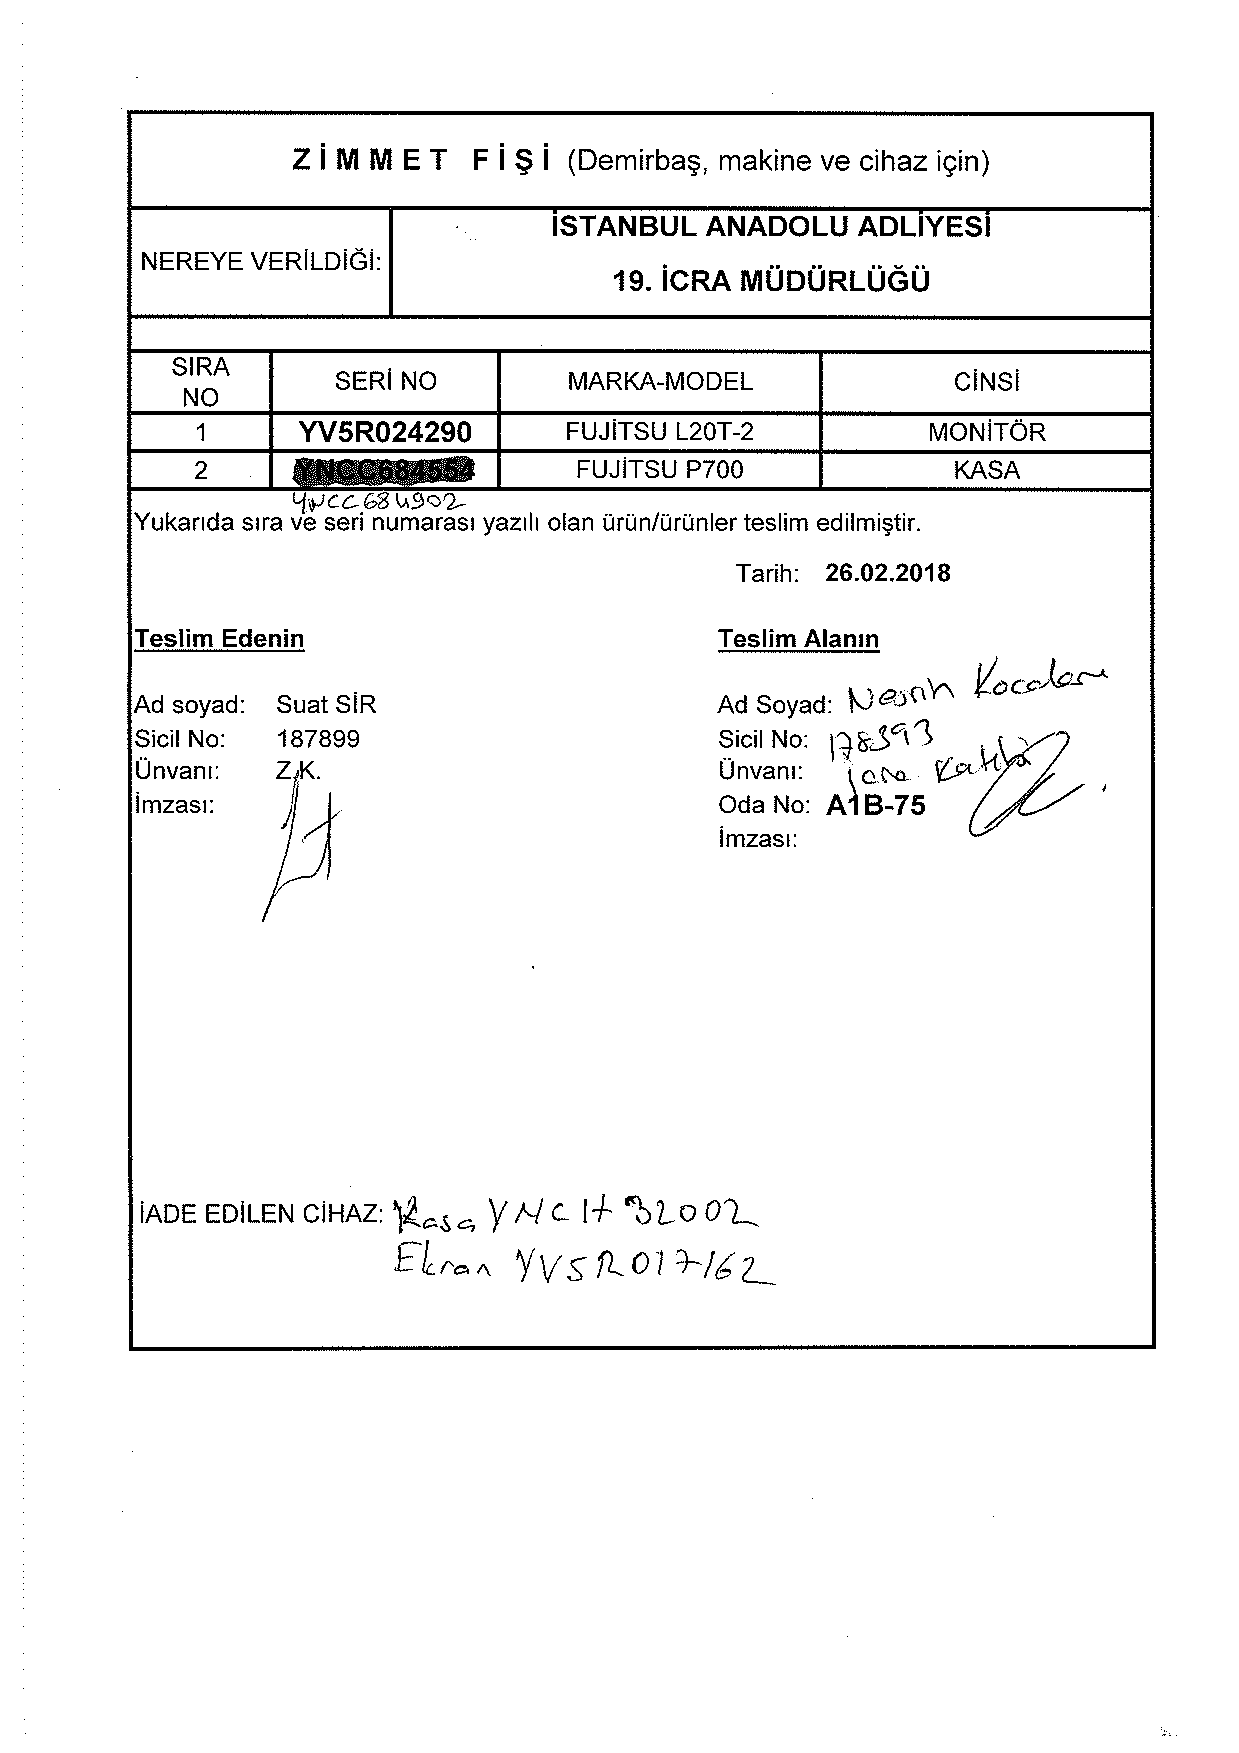 ZİMMET FİŞİ (Demirbaş, makine ve cihaz için)
NEREYE VERİLDİĞİ:
İSTANBUL ANADOLU ADLİYESİ
19. İCRA MÜDÜRLÜĞÜ
SIRA NO SERİ NO MARKA-MODEL CİNSİ
1 YV5R024290 FUJİTSU L20T-2 MONİTÖR
2 YNCC684554 FUJİTSU P700 KASA
YNCC684902
Yukarıda sıra ve seri numarası yazılı olan ürün/ürünler teslim edilmiştir.
Tarih: 26.02.2018
Teslim Edenin
Ad soyad: Suat SİR
Sicil No: 187899
Ünvanı: Z.K.
İmzası:
Teslim Alanın
Ad Soyad:
Sicil No: 178393
Ünvanı: icra Katibi
Oda No: A1B-75
İmzası:
İADE EDİLEN CİHAZ: Kasa YNCH32002
Ekran YV5R017162